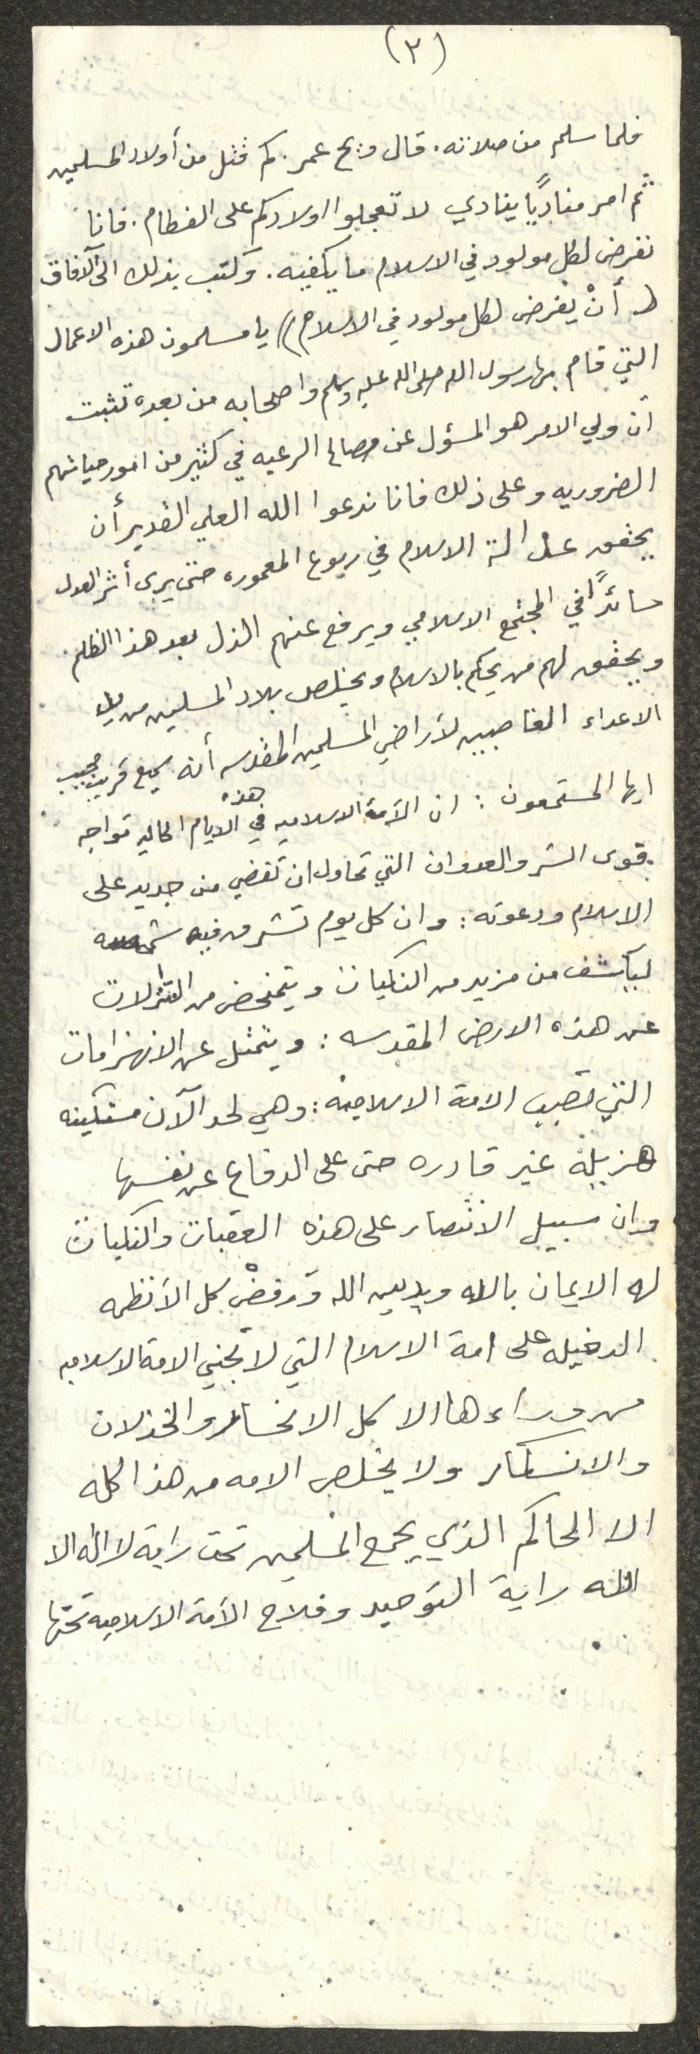 (٣)
فلما سلم من صلاته. قال ويح عمر. كم قتل من أولاد المسلمين
ثم امر مناديًا ينادي لا تعجلوا اولادكم على الفطام. فانا
نفرض لكل مولود في الاسلام ما يكفيه. وكتب بذلك الى الآفاق
( أنْ يفرض لكل مولود في الاسلام) يا مسلمون هذه الاعمال
التي قام بها رسول الله صلى الله عليه وسلم واصحابه من بعده تثبت
ان ولي الامر هو المسؤل عن مصالح الرعيه في كثير من امور حياتهم
الضروريه وعلى ذلك فانا ندعوا الله العلي القدير أن
يحقق عدالة الاسلام في ربوع المعموره حتى يرى أثر العدل
سائدًا في المجتمع الاسلامي ويرفع عنهم الذل بعد هذا الظلم.
ويحقق لهم من يحكم بالاسلام ويخلص بلاد المسلمين من يد
الاعداء الغاصبين لأراضي المسلمين المقدسه أنه سميع قريب مجيب
ايها المستمعون : ان الأمة الاسلاميه في هذه الايام الحاليه تواجه
قوى الشر والعدوان التي تحاول ان تقضي من جديد على
الاسلام ودعوته : وان كل يوم تشرق فيه شمسه
ليكشف من مزيد من النكبات ويتمخض من التنزلات
عن هذه الارض المقدسه : ويتمثل عن الانهزامات
التي تصيب الامة الاسلامية : وهي لحد الآن مستكينه
هزيلة غير قادره حتى على الدفاع عن نفسها
وان سبيل الانتصار على هذه العقبات والنكبات
له الايمان بالله وبدين الله ورفضْ كل الأنظمه
الدخيله على امة الاسلام التي لا تجني الامة الاسلاميه
من وراءها الا كل الانخسار والخذلان
والانكسار ولا يخلص الامه من هذا كله
الا الحاكم الذي يجمع المسلمين تحت راية لا اله الا
الله راية التوحيد وفلاح الأمة الاسلاميه تحتها